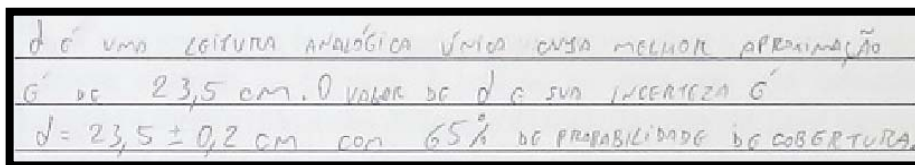 d É UMA LEITURA ANALÓGICA ÚNICA CUJA MELHOR APROXIMAÇÃO
É DE 23,5 cm. O VALOR DE d E SUA INCERTEZA É
d = 23,5 ± 0,2 cm COM 65% DE PROBABILIDADE DE COBERTURA